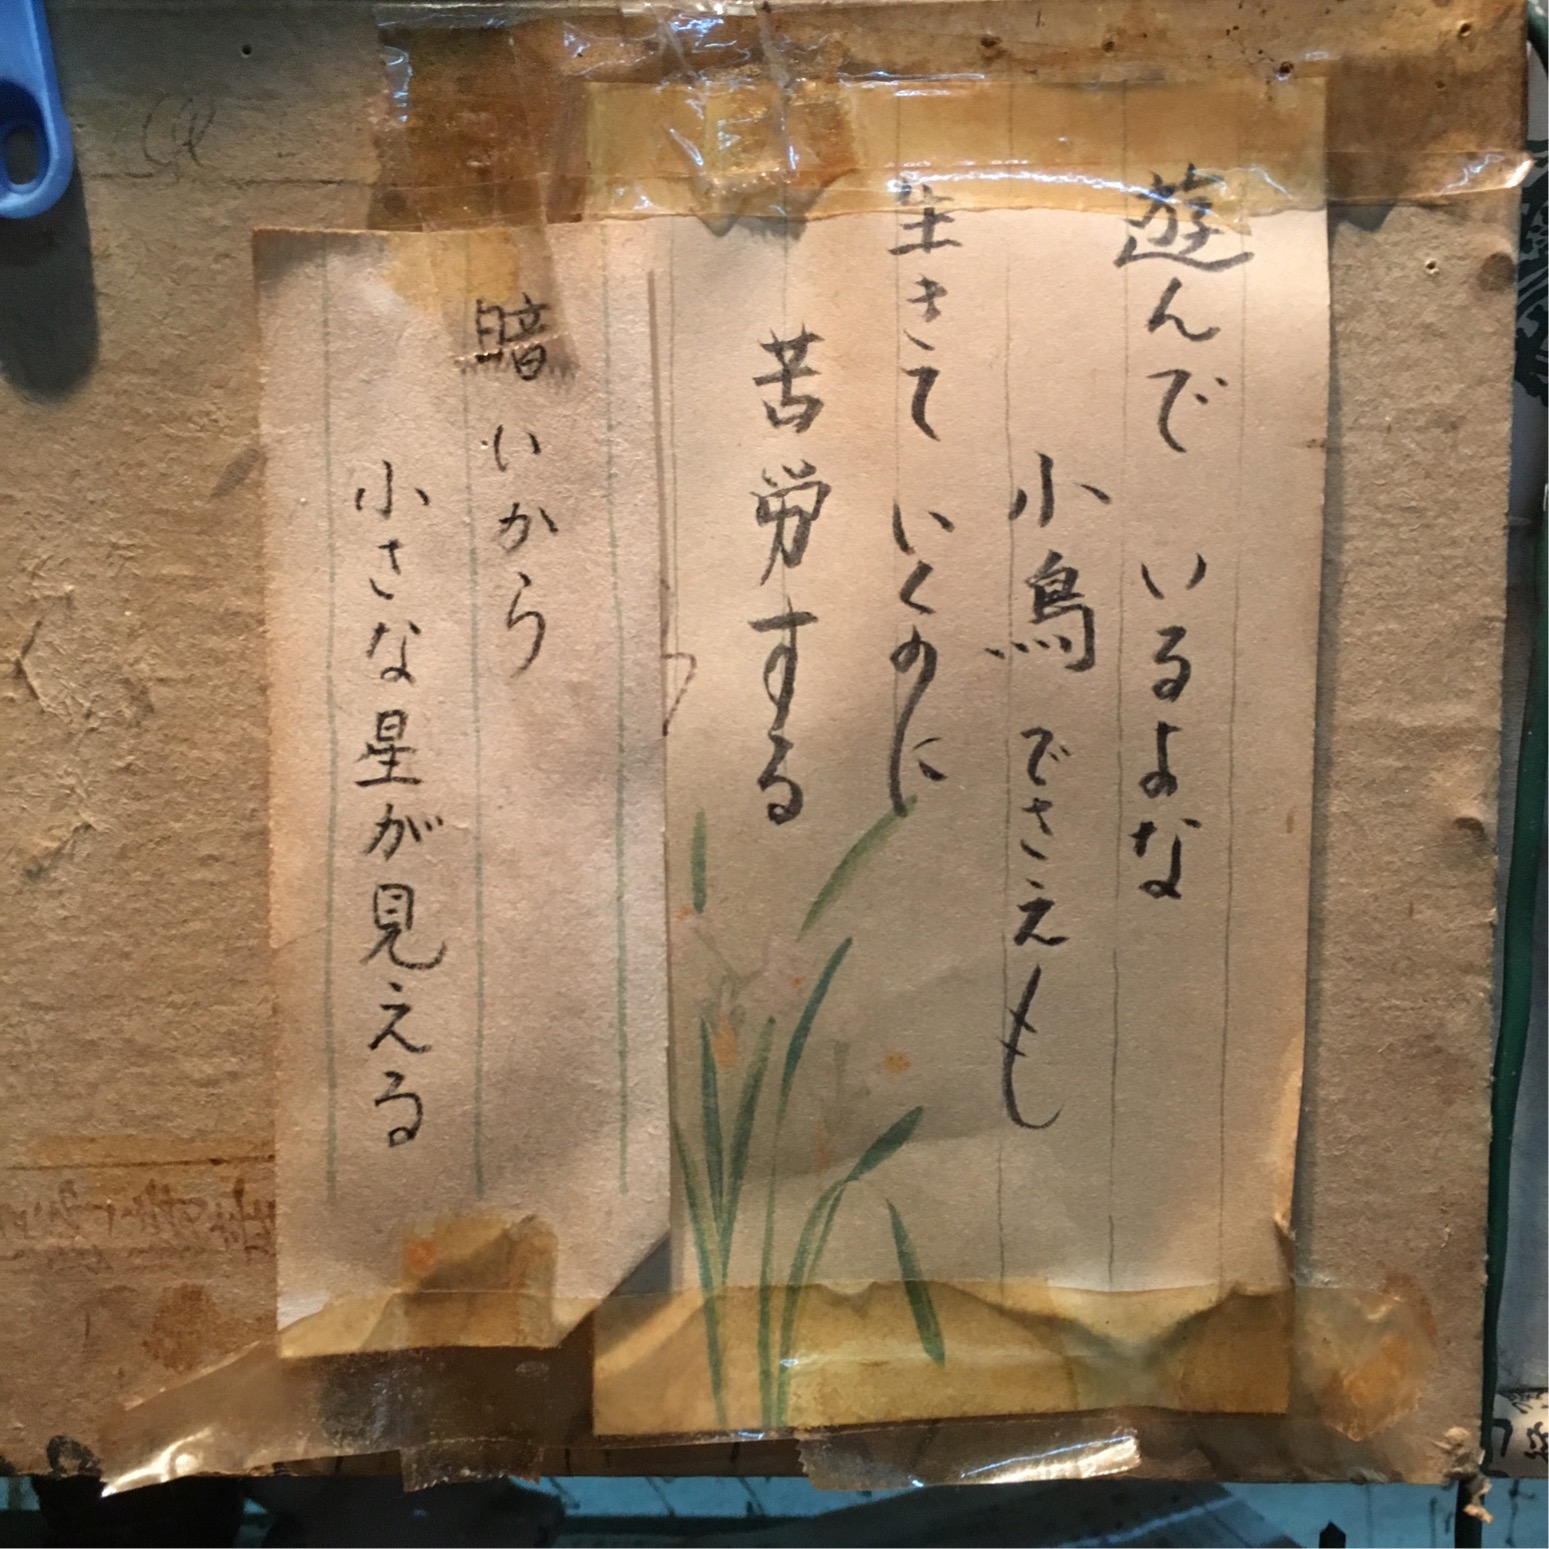 遊んで いるよな
小鳥 でさえも
生きて いくのに
苦労する
暗いから
小さな星が見える